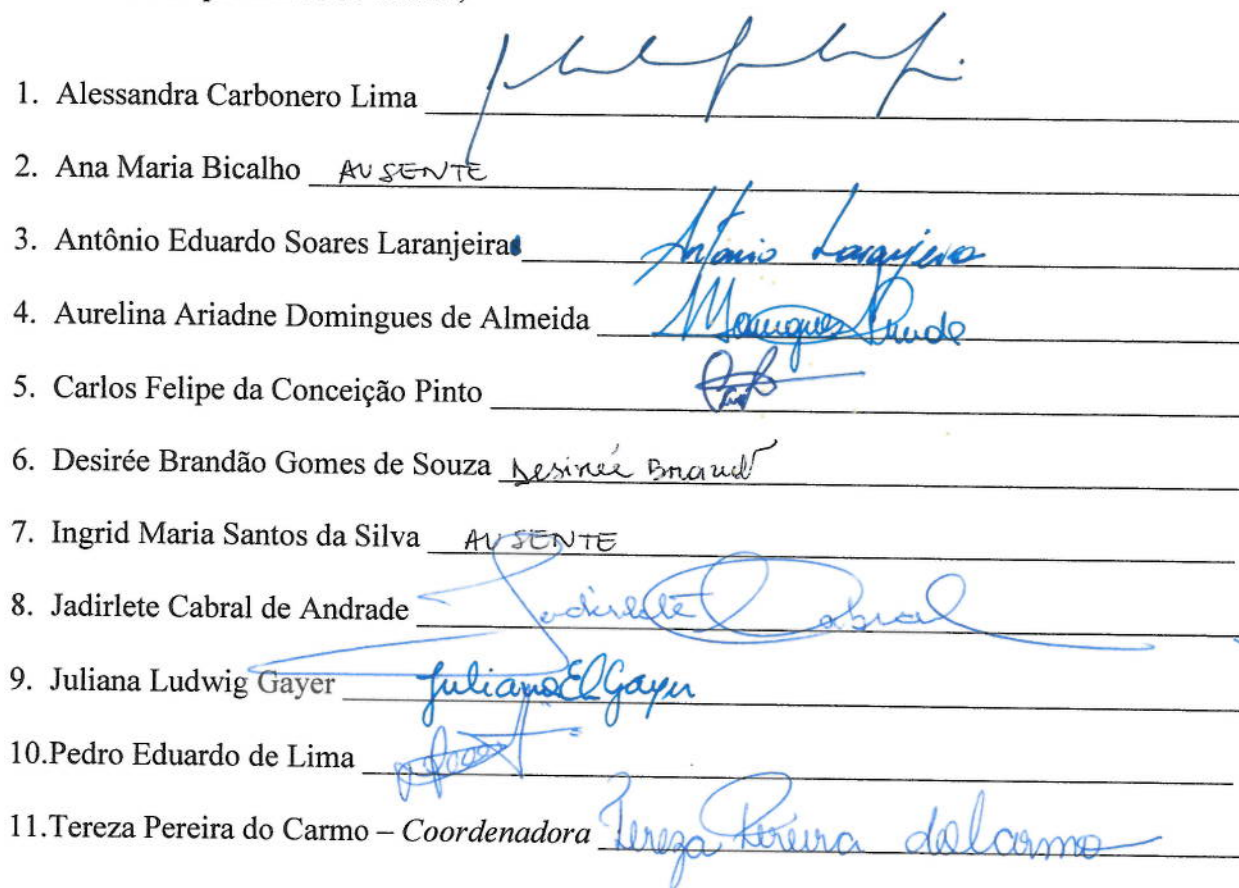 1. Alessandra Carbonero Lima
2. Ana Maria Bicalho AUSENTE
3. Antônio Eduardo Soares Laranjeira Antônio Laranjeira
4. Aurelina Ariadne Domingues de Almeida
5. Carlos Felipe da Conceição Pinto
6. Desirée Brandão Gomes de Souza Desirée
7. Ingrid Maria Santos da Silva AUSENTE
8. Jadirlete Cabral de Andrade Jadirlete Cabral
9. Juliana Ludwig Gayer Juliana El Gayer
10.Pedro Eduardo de Lima
11.Tereza Pereira do Carmo – Coordenadora Tereza Pereira do Carmo